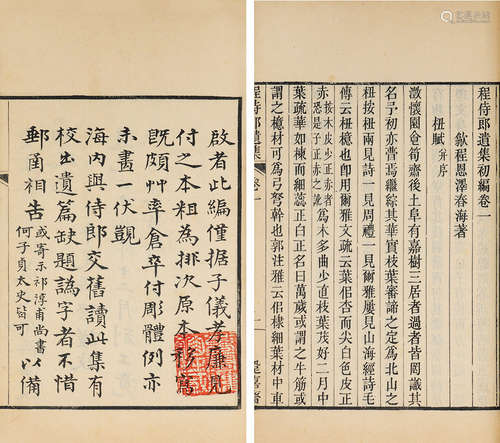 程侍郎遺集初編卷一
歙程恩澤春海著
杻賦并序
澂懷園倉筍齋後土阜有嘉樹三居者過者皆罔識其
名予初亦瞢焉繼綜其華實枝葉審諦之定爲北山之
杻按杻兩見詩一見周禮一見爾雅屢見山海經詩毛
傳云杻檍也卽用爾雅文疏云葉佀杏而尖白色皮正
赤按木皮少正赤者恐是子正赤之譌爲木多曲少直枝葉茂好二月中
葉疏華如楝而細蕊正白正名曰萬歲或謂之牛筋或
謂之檍材可爲弓弩幹也郭注雅云佀棣細葉葉材中車
程侍郎遺集
卷一
一
啟者此編僅据子儀孝廉見
付之本粗為排次原本移寫
既頗艸率倉卒付彫體例亦
未畫一伏覬
海内與侍郎交舊讀此集有
校出遺篇缺題譌字者不惜
郵函相告或寄示祁淳甫尚書何子貞太史皆可以備